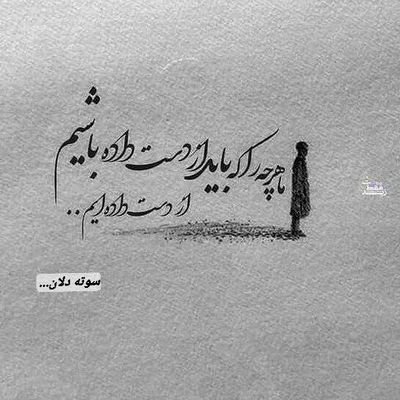 ما هرچه را که باید از دست داده باشیم
از دست داده ایم..
سوته دلان...